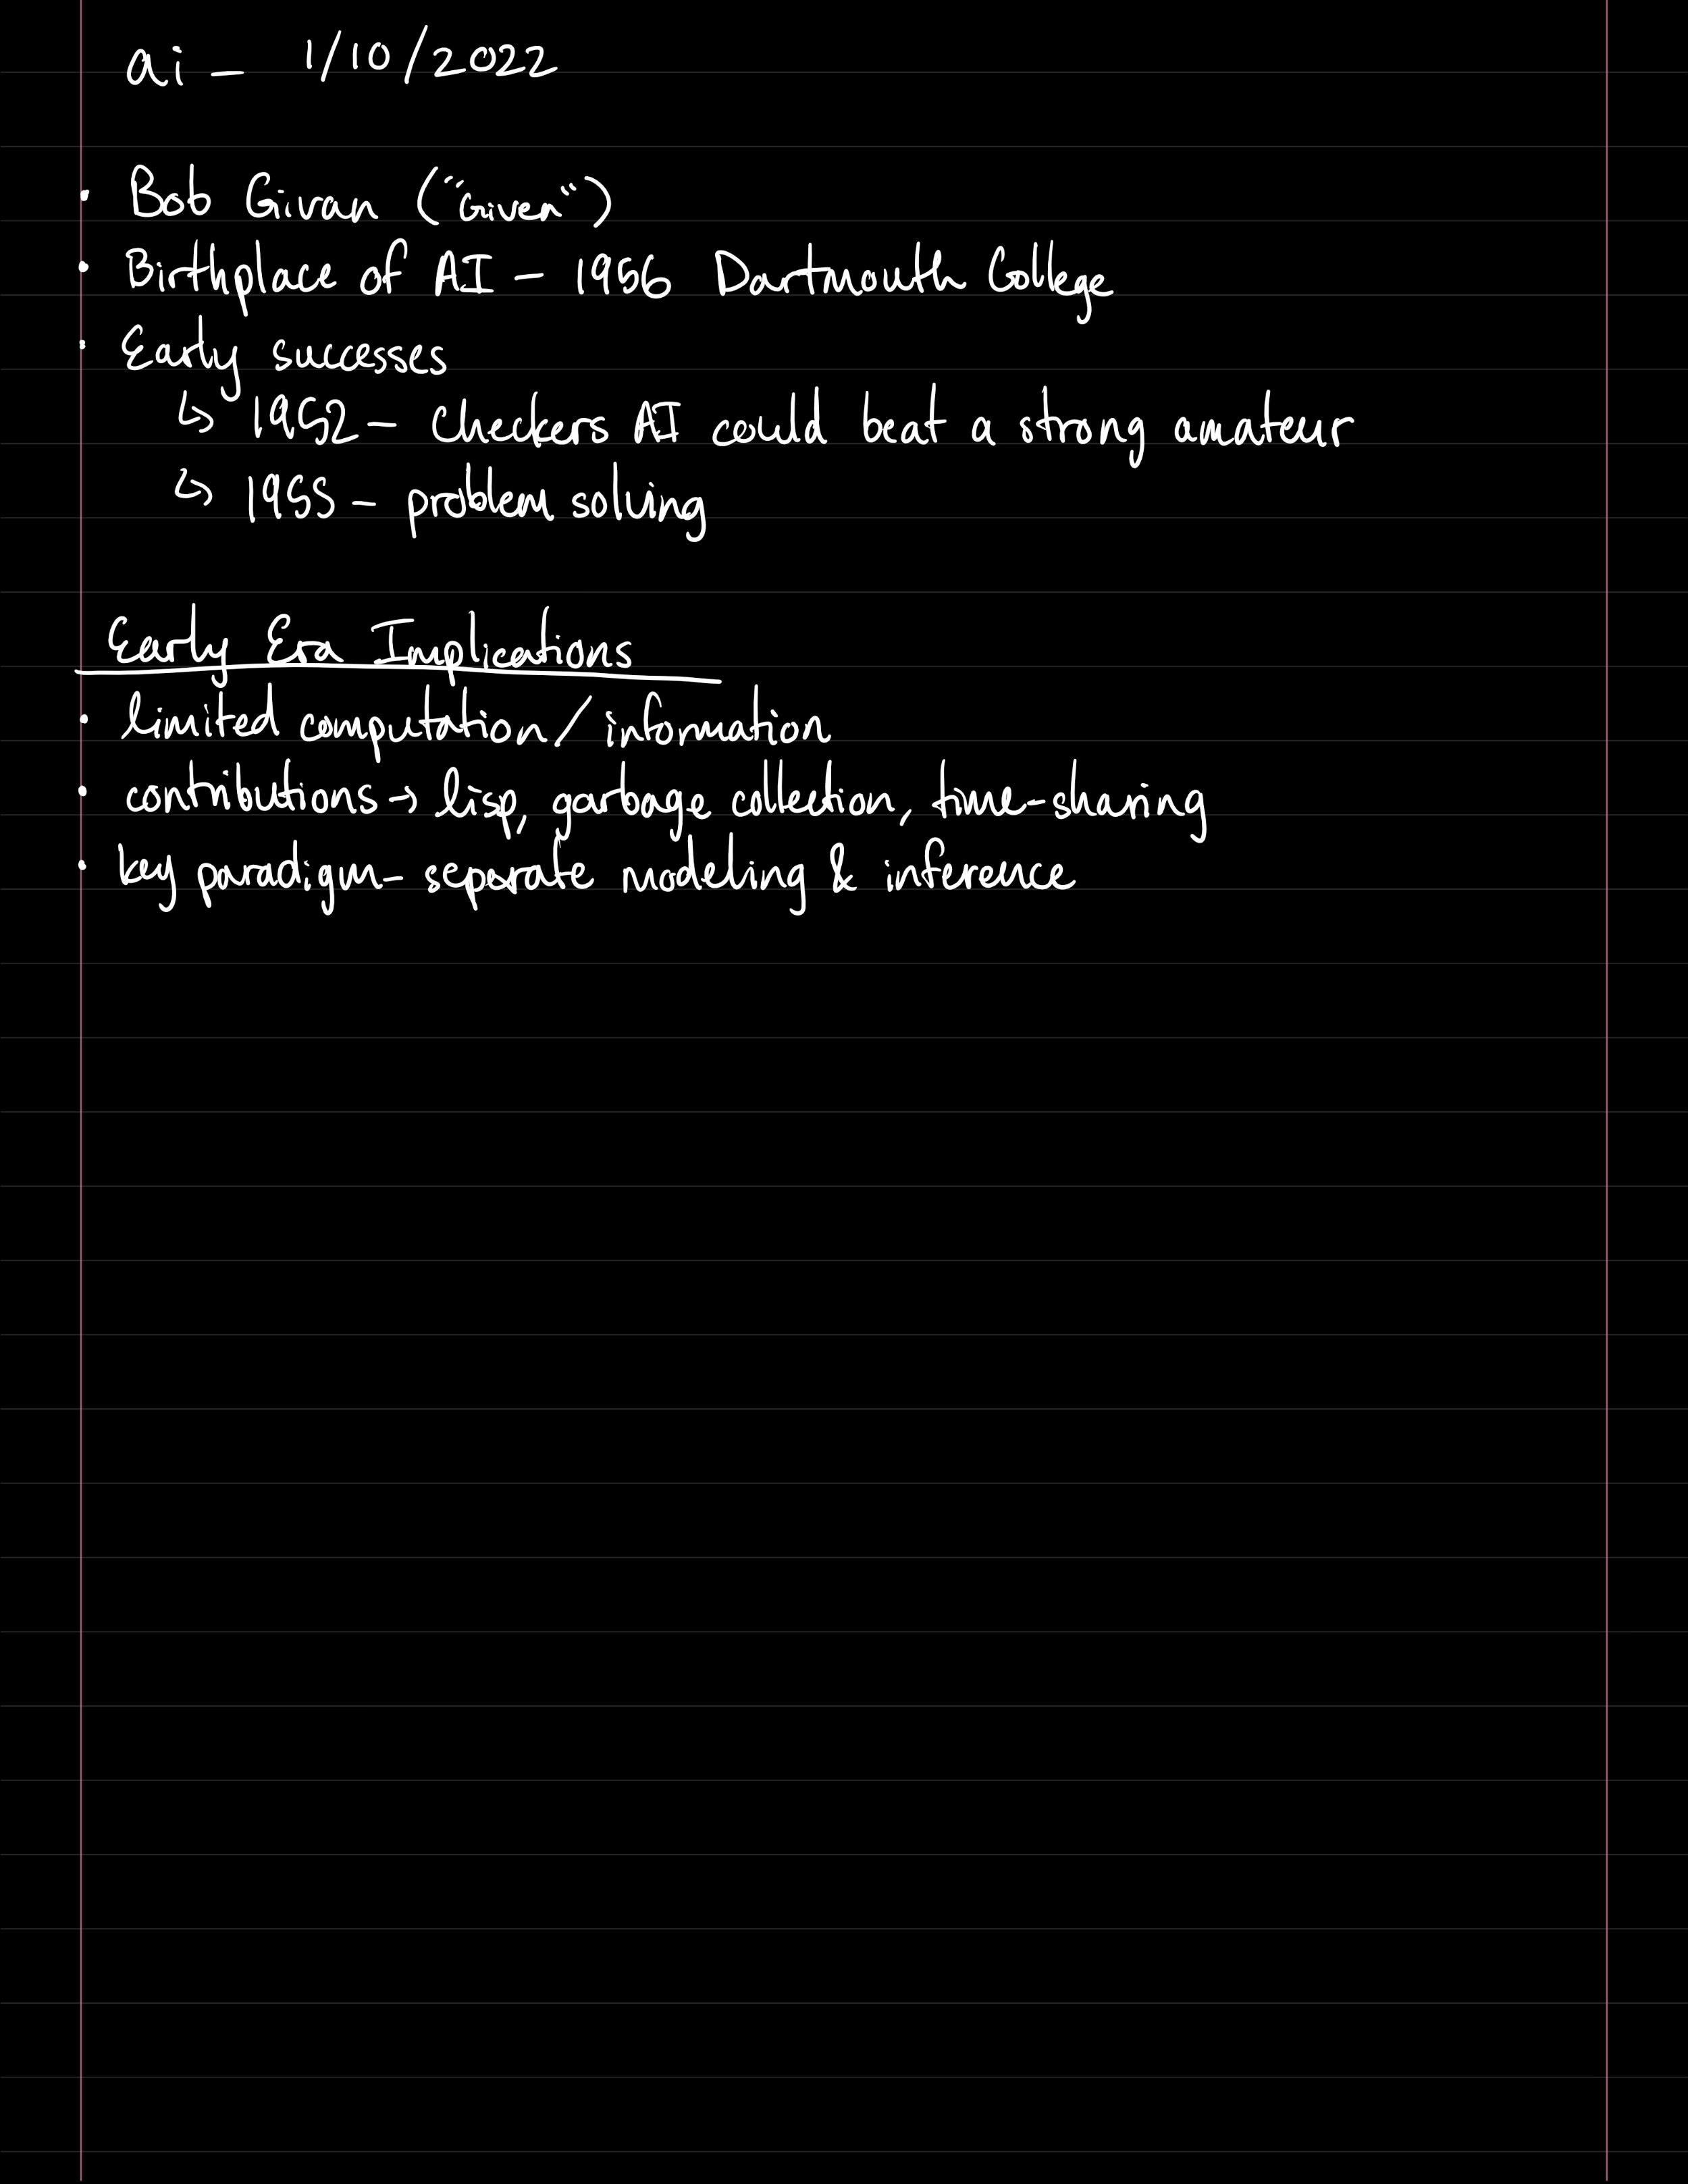 ai - 1/10/2022
• Bob Givan ("Given")
• Birthplace of AI - 1956 Dartmouth College
• Early successes
↳ 1952 - Checkers AI could beat a strong amateur
↳ 1955 - problem solving
Early Era Implications
• limited computation/information
• contributions → lisp, garbage collection, time-sharing
• key paradigm - separate modeling & inference